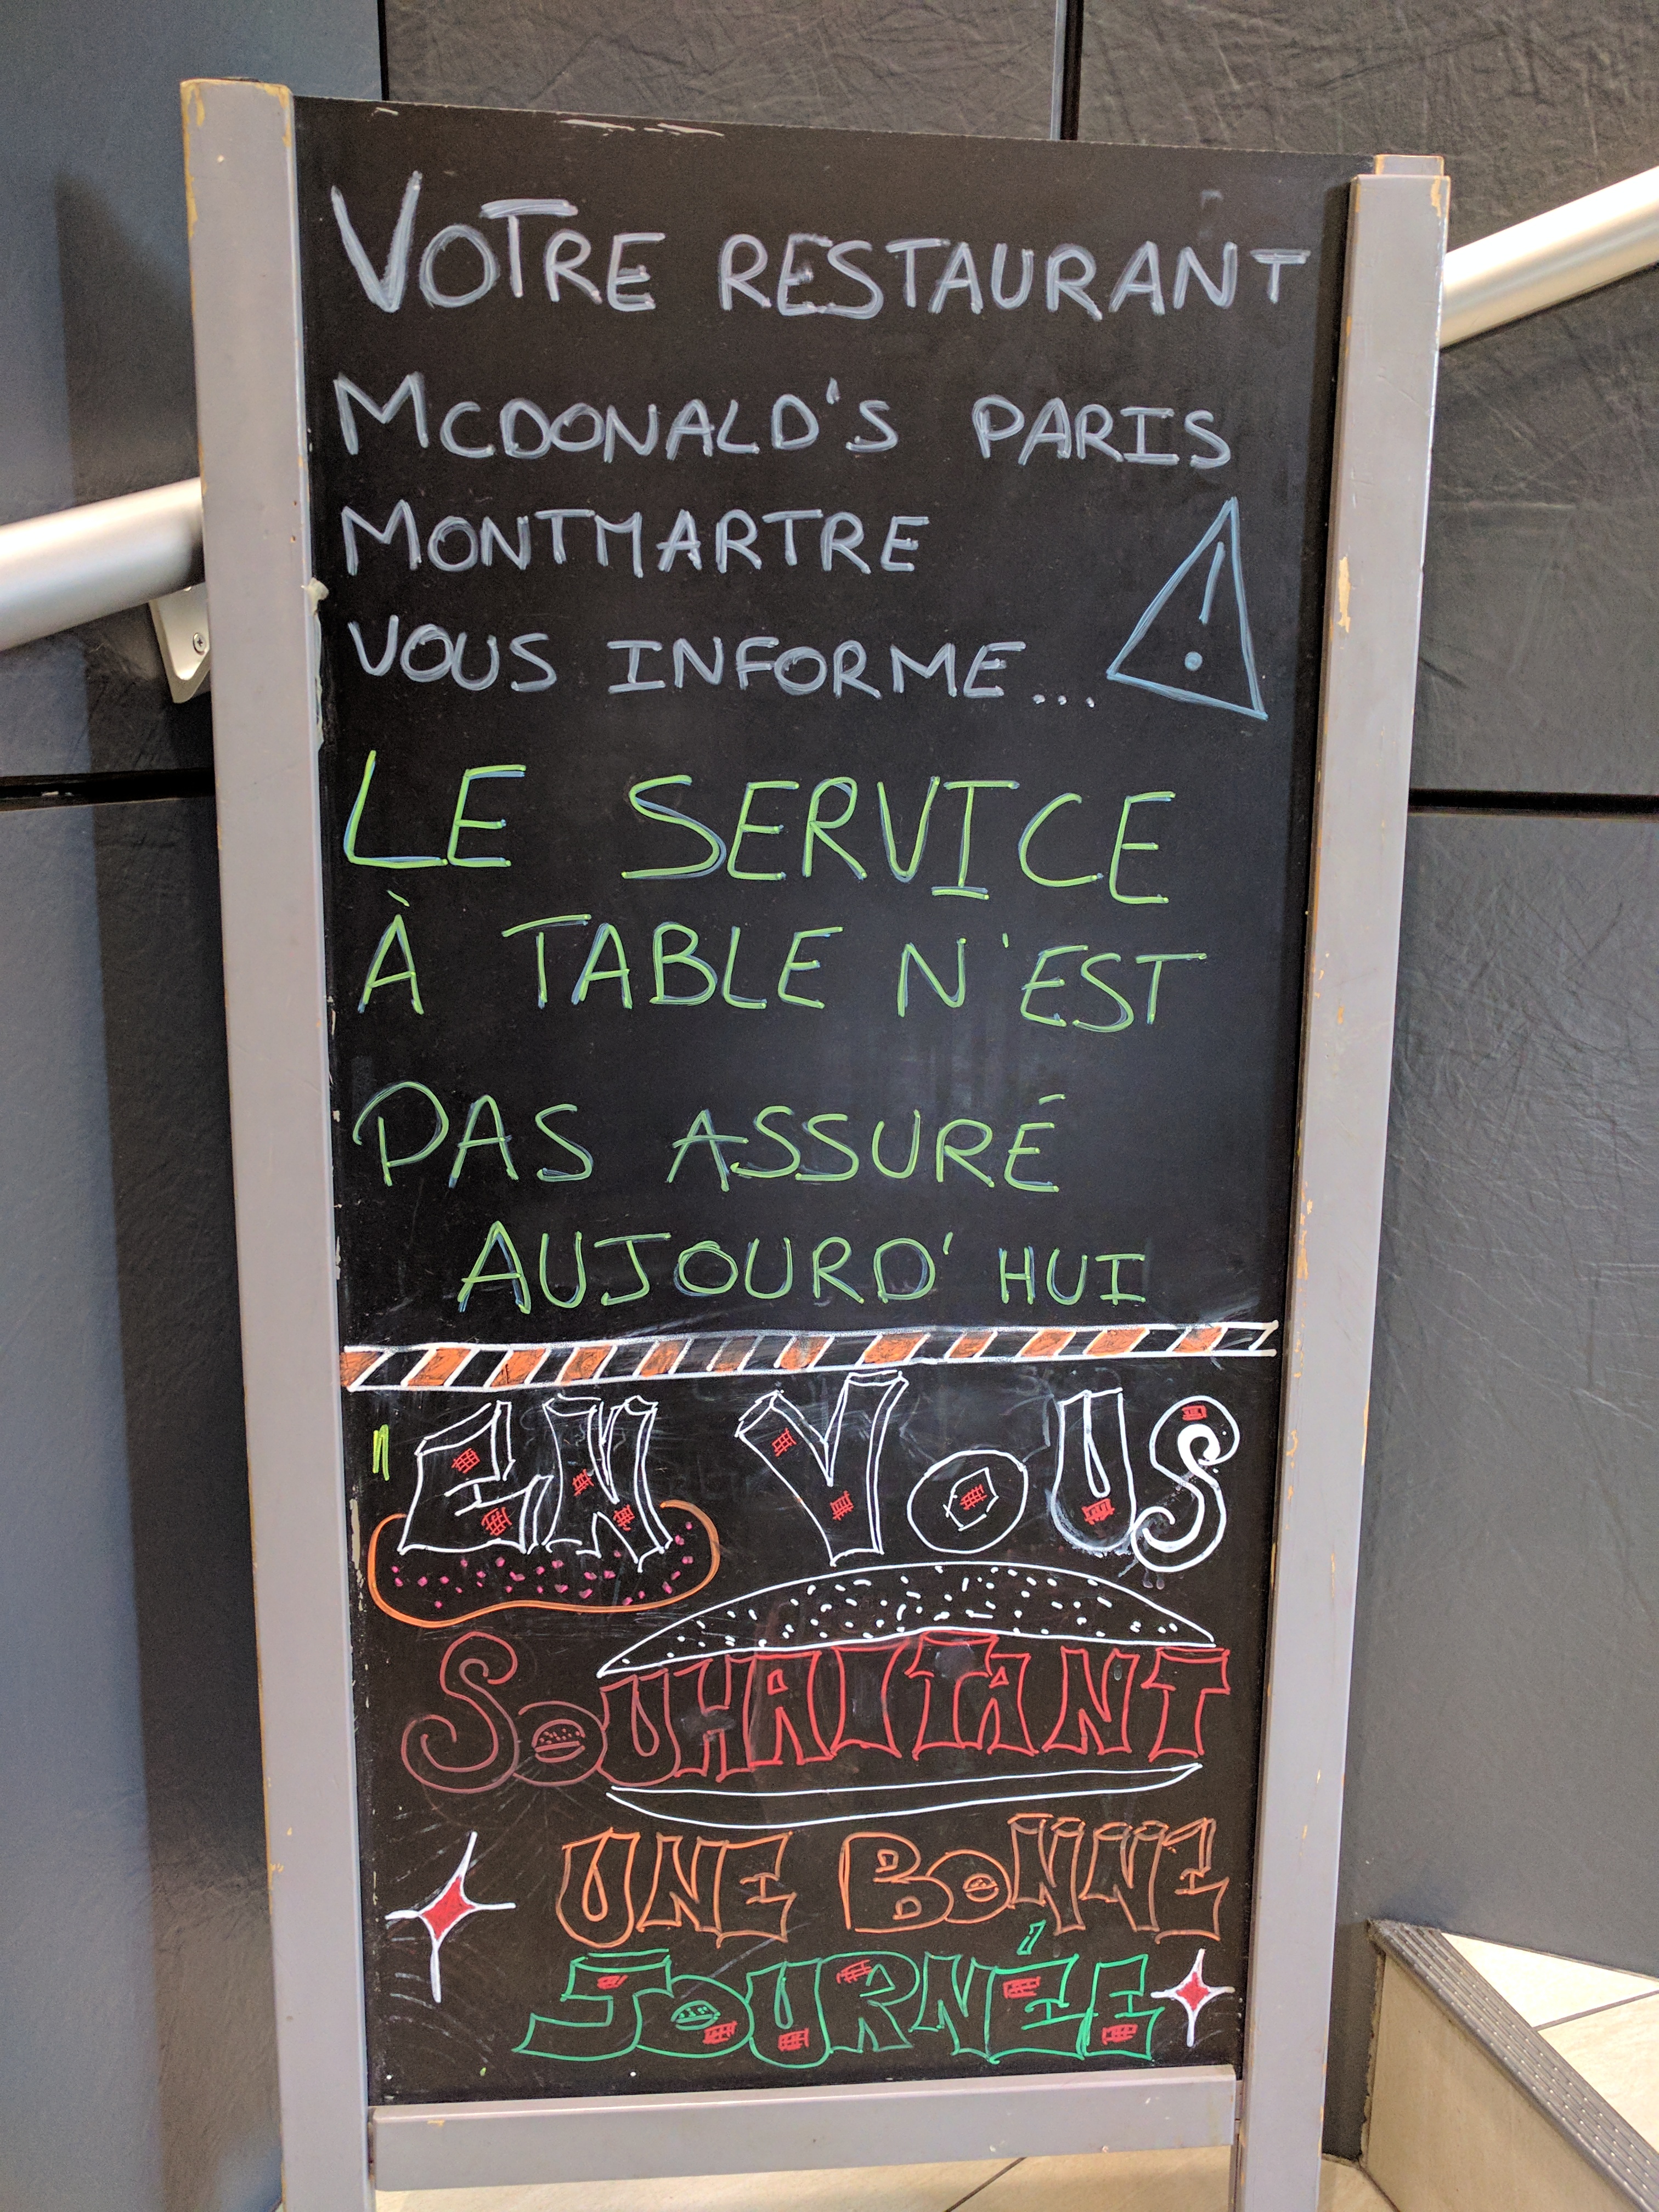 VOTRE RESTAURANT
MCDONALD'S PARIS
MONTMARTRE
VOUS INFORME...
LE SERVICE
À TABLE N'EST
PAS ASSURÉ
AUJOURD'HUI
EN VOUS
SOUHAITANT
UNE BONNE
JOURNÉE